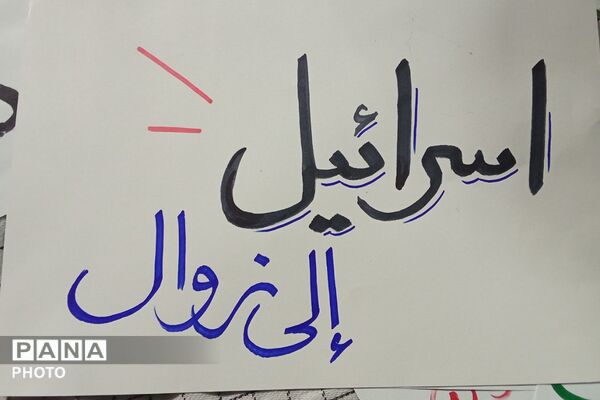 اسرائیل
إلى زوال
PANA
PHOTO